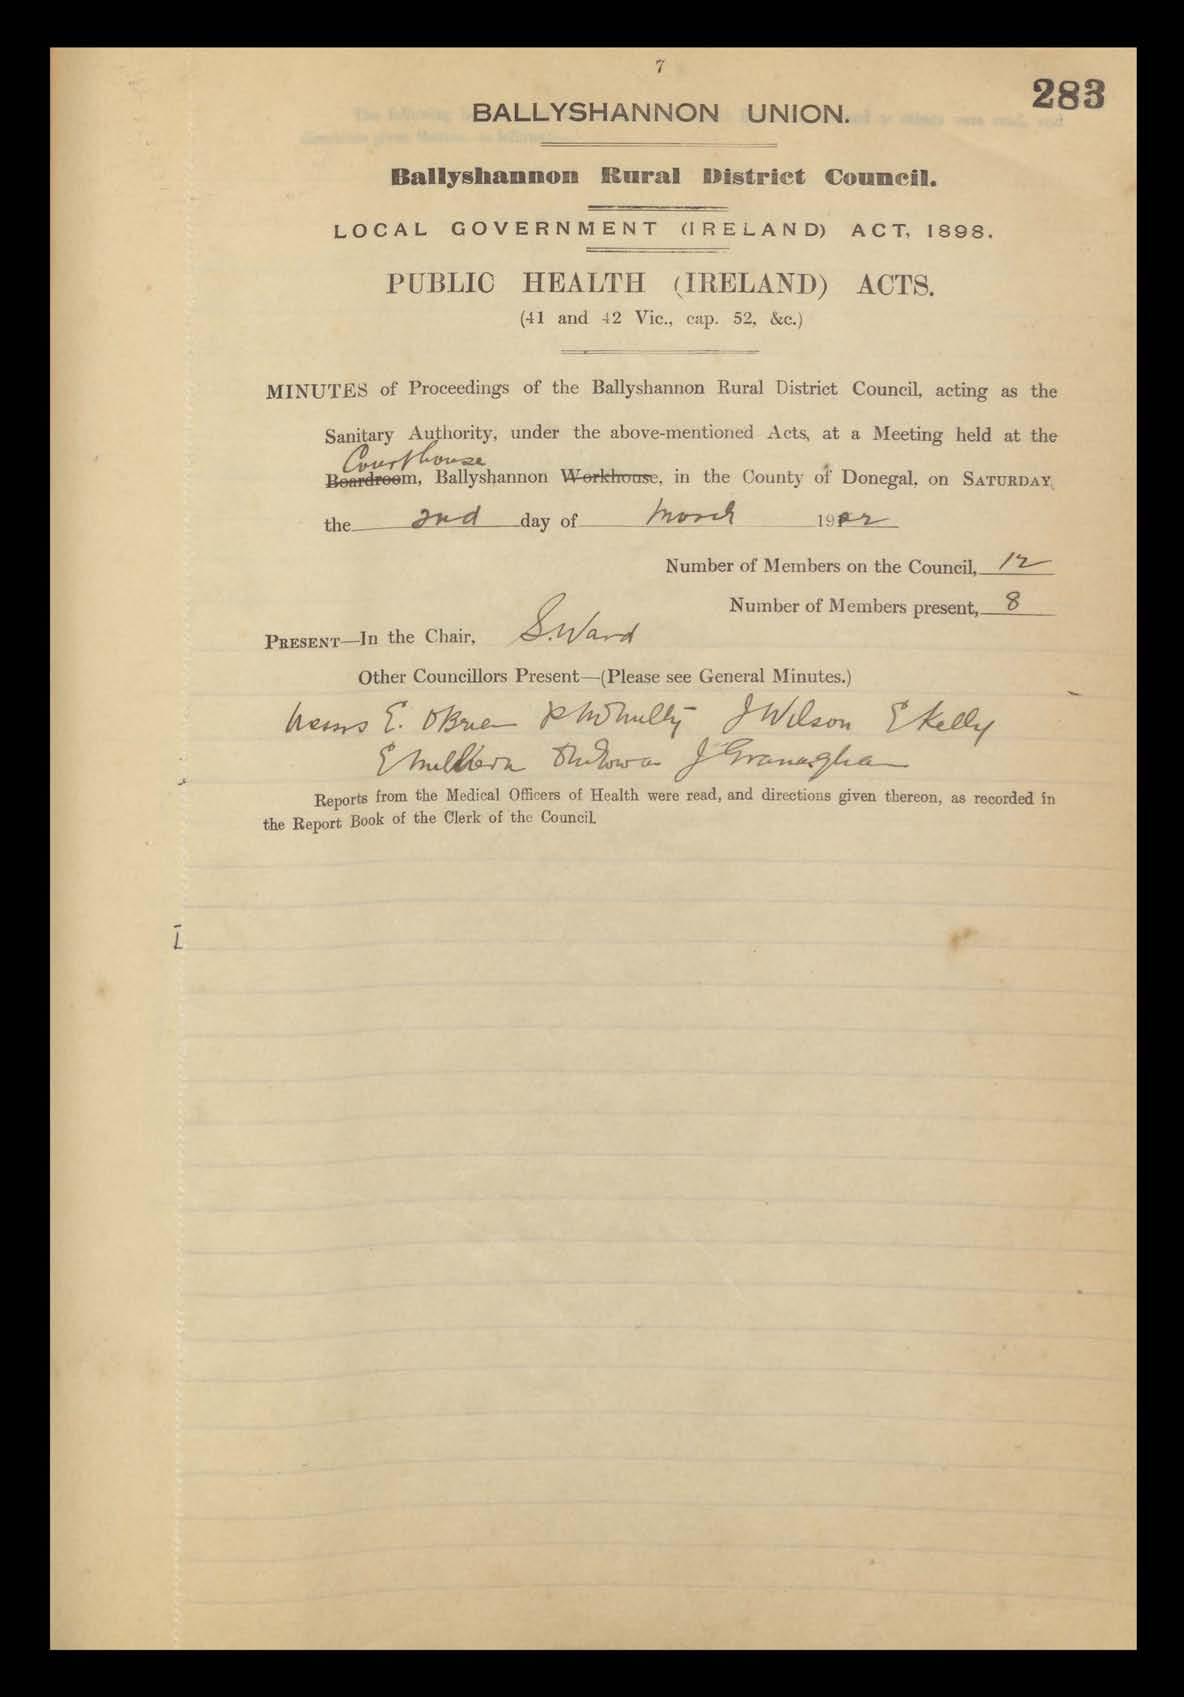 7
283
BALLYSHANNON UNION.
Ballyshannon Rural District Council.
LOCAL GOVERNMENT (IRELAND) ACT, 1898.
PUBLIC HEALTH (IRELAND) ACTS.
(41 and 42 Vic., cap. 52, &c.)
MINUTES of Proceedings of the Ballyshannon Rural District Council, acting as the
Sanitary Authority, under the above-mentioned Acts, at a Meeting held at the
Courthouse
Boardroom, Ballyshannon Workhouse, in the County of Donegal, on SATURDAY,
the 2nd day of March 19
Number of Members on the Council, 12
Number of Members present, 8
PRESENT—In the Chair, S. Ward
Other Councillors Present—(Please see General Minutes.)
E. OBrien J Wilson E Kelly
J Granaghan
Reports from the Medical Officers of Health were read, and directions given thereon, as recorded in
the Report Book of the Clerk of the Council.